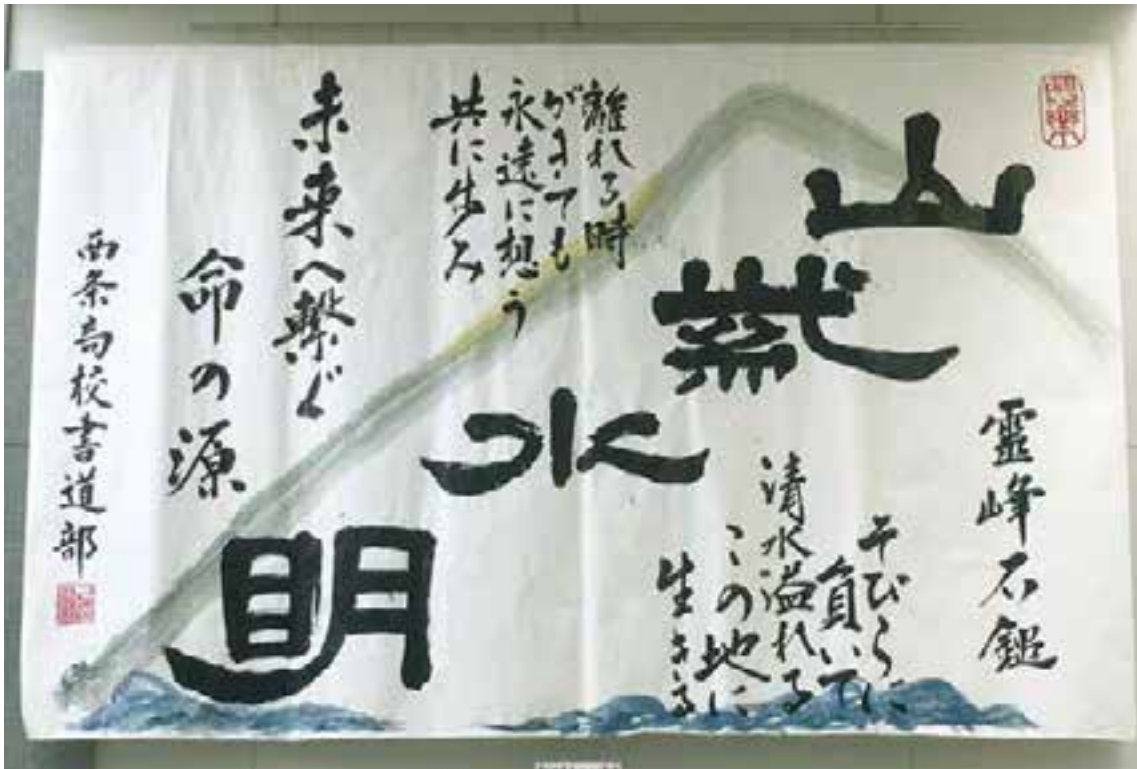 靈峰石鎚
そびらに
負いて
清水溢れる
この地に
生きる
山紫水明
離れる時
がきても
永遠に想う
共に歩み
未来へ繋ぐ
命の源
西条高校書道部